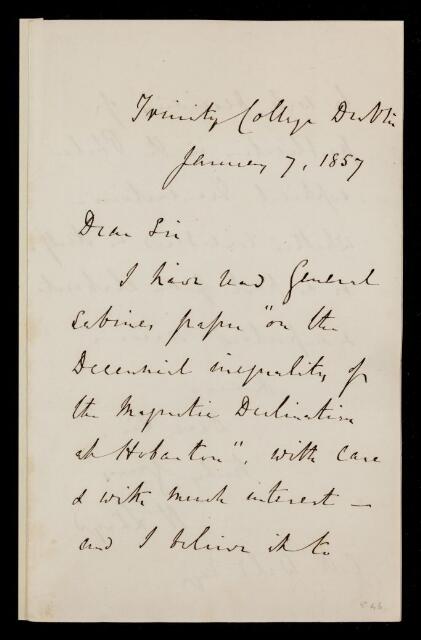 Trinity College Dublin
January 7, 1857
Dear Sir
I have read General
Sabines paper "on the
Decennial inequality of
the Magnetic Declination
at Hobarton", with care
& with much interest —
and I believe it to